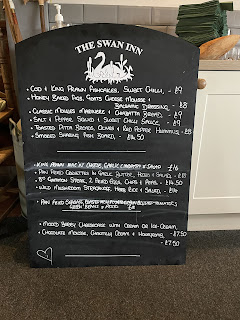 THE SWAN INN
• COD & KING PRAWN FISHCAKES, SWEET CHILLI, - £9
• HONEY BAKED FIGS, GOATS CHEESE MOUSSE &
BALSAMIC DRESSING - £8
• CLASSIC MOULES MARINIERE & CIABATTA BREAD, - £9
• SALT & PEPPER SQUID & SWEET CHILLI SAUCE - £9
• TOASTED PITTA BREADS, OLIVES & RED PEPPER HUMMUS, - £8
• SMOKED SHARING FISH BOARD, - £14.50
• KING PRAWN MAC N' CHEESE, GARLIC CIABATTA & SALAD - £16
• PAN FRIED COURGETTES IN GARLIC BUTTER, & SALAD - £18
• 8oz GAMMON STEAK, 2 FRIED EGGS, CHIPS & PEAS - £14.50
• WILD MUSHROOM STROGANOFF, HERB RICE & SALAD, - £14
• PAN FRIED
GREEN BEANS &
• MIXED BERRY CHEESECAKE WITH CREAM OR ICE-CREAM, - £7.50
• CHOCOLATE MOUSSE, CHANTILLY CREAM & HONEYCOMB, - £7.50